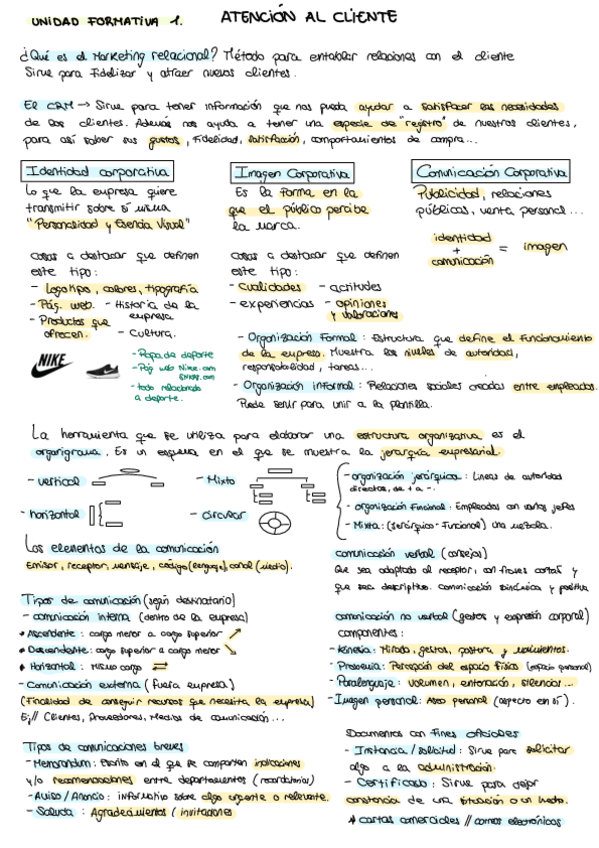 UNIDAD FORMATIVA 1.
ATENCIÓN AL CLIENTE
¿Qué es el Marketing relacional? Método para entablar relaciones con el cliente
Sirve para fidelizar y atraer nuevos clientes.
El CRM → Sirve para tener información que nos pueda ayudar a satisfacer las necesidades
de los clientes. Además nos ayuda a tener una especie de "registro" de nuestros clientes,
para así saber sus gustos, fidelidad, satisfacción, comportamientos de compra...
Identidad corporativa
Lo que la empresa quiere
transmitir sobre sí misma
"Personalidad y Esencia Visual"
cosas a destacar que definen
este tipo:
- Logotipo, colores, tipografía
- Pág. web. - Historia de la
empresa
- Productos que
ofrecen.
- Cultura.
NIKE
- Ropa de deporte
- Pág web Nike.com
- todo relacionado
a deporte.
Imagen Corporativa
Es la forma en la
que el público percibe
la marca.
cosas a destacar que definen
este tipo:
- Cualidades - actitudes
- experiencias - opiniones
y valoraciones
Comunicación Corporativa
Publicidad, relaciones
públicas, venta personal...
identidad
+
comunicación
= imagen
- Organización Formal: Estructura que define el funcionamiento
de la empresa. Muestra los niveles de autoridad,
responsabilidad, tareas...
- Organización informal: Relaciones sociales creadas entre empleados.
Puede servir para unir a la plantilla.
La herramienta que se utiliza para elaborar una estructura organizativa es el
organigrama. Es un esquema en el que se muestra la jerarquía empresarial.
- vertical
- Mixto
- horizontal
- circular
- organización jerárquica: Líneas de autoridad
directas, de + a -.
- organización Funcional: Empleados con varios jefes
- Mixta: (Jerárquico - Funcional) Una mezcla.
Los elementos de la comunicación
Emisor, receptor, mensaje, código (lenguaje), canal (medio).
Tipos de comunicación (según destinatario)
- comunicación interna (dentro de la empresa)
* Ascendente: cargo menor a cargo superior ↗
* Descendente: cargo superior a cargo menor ↘
* Horizontal: Mismo cargo ⇄
- Comunicación externa (fuera empresa)
(Finalidad de conseguir recursos que necesita la empresa)
Ej// Clientes, Proveedores, Medios de comunicación...
Tipos de comunicaciones breves
- Memorandum: Escrito en el que se comparten indicaciones
y/o recomendaciones entre departamentos (recordatorios)
- Aviso / Anuncio: informativo sobre algo urgente o relevante.
- Saluda: Agradecimientos / invitaciones
comunicación verbal (consejos)
Que sea adaptado al receptor, con frases cortas y
que sea descriptivo. comunicación y positiva
comunicación no verbal (gestos y expresión corporal)
componentes:
- Kinesia: Mirada, gestos, postura y movimientos.
- Proxemia: Percepción del espacio físico (espacio personal)
- Paralenguaje: volumen, entonación, silencios...
- Imagen personal: Aseo personal (aspecto en sí).
Documentos con fines oficiales
- Instancia / solicitud: Sirve para solicitar
algo a la administración.
- Certificado: Sirve para dejar
constancia de una situación o un hecho.
* cartas comerciales // correos electrónicos